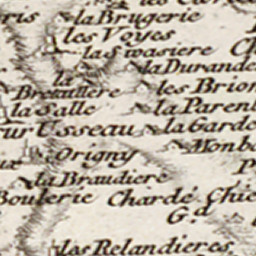 la Brugerie
les Voyes
la Swasiere
la Durande
la
Bretaullere
les Brion
la Salle
la Parent
sur Usseau
la Garde
Origny
Monba
la Braudiere
Bouterie
Chardé
Chie
G.d
les Relandieres